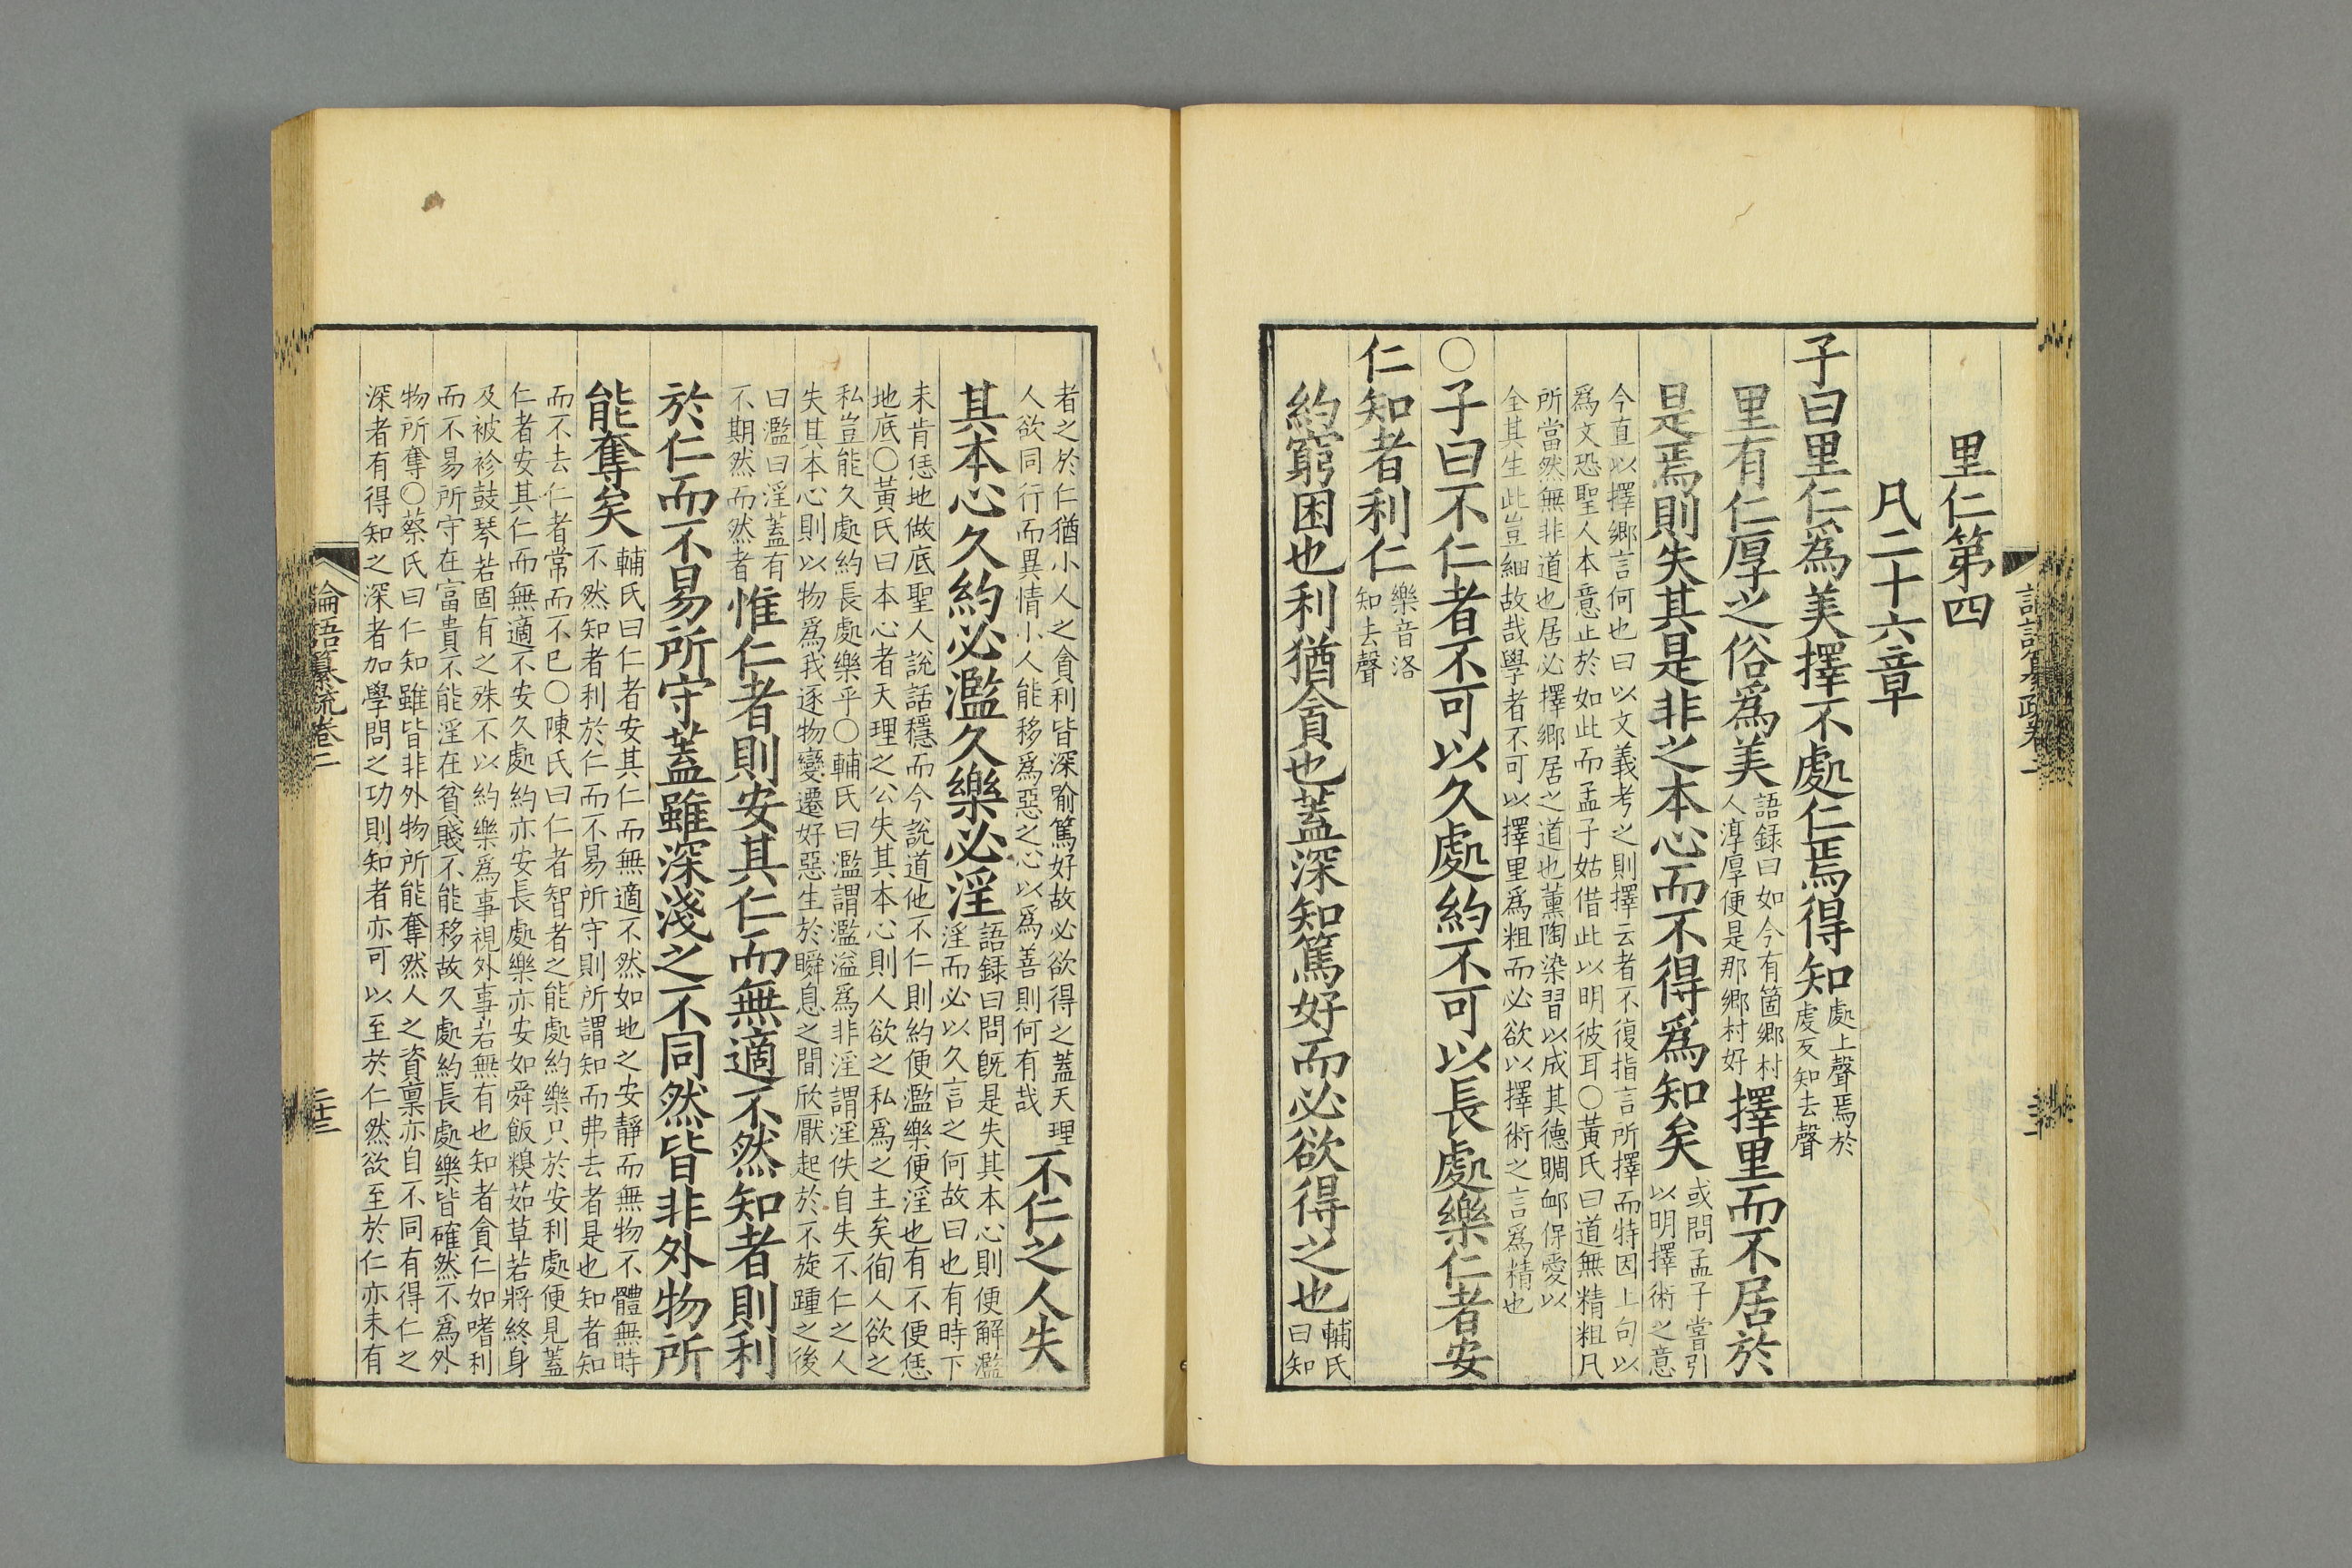 里仁第四
凡二十六章
子曰里仁爲美擇不處仁焉得知
處上聲焉於
虔反知去聲
里有仁厚之俗爲美
語録曰如今有箇鄉村
人淳厚便是那鄉村好
擇里而不居於
是焉則失其是非之本心而不得爲知矣
或問孟子甞引
以明擇術之意
今直以擇鄉言何也曰以文義考之則擇云者不復指言所擇而特因上句以
爲文恐聖人本意止於如此而孟子姑借此以明彼耳○黃氏曰道無精粗凡
所當然無非道也居必擇鄉居之道也薰陶染習以成其德賙衈保愛以
全其生此豈細故哉學者不可以擇里爲粗而必欲以擇術之言爲精也
○子曰不仁者不可以久處約不可以長處樂仁者安
仁知者利仁
樂音洛
知去聲
約窮困也利猶貪也蓋深知篤好而必欲得之也
輔氏
曰知
者之於仁猶小人之貪利皆深喻篤好故必欲得之蓋天理
人欲同行而異情小人能移爲惡之心以爲善則何有哉
不仁之人失
其本心久約必濫久樂必淫
語録曰問旣是失其本心則便解濫
淫而必以久言之何故曰也有時下
未肯恁地做底聖人說話穩而今說道他不仁則約便濫樂便淫也有不便恁
地底○黃氏曰本心者天理之公失其本心則人欲之私爲之主矣徇人欲之
私豈能久處約長處樂乎○輔氏曰濫謂濫溢爲非淫謂淫佚自失不仁之人
失其本心則以物爲我逐物變遷好惡生於瞬息之間欣厭起於不旋踵之後
曰濫曰淫蓋有
不期然而然者
惟仁者則安其仁而無適不然知者則利
於仁而不易所守蓋雖深淺之不同然皆非外物所
能奪矣
輔氏曰仁者安其仁而無適不然如地之安靜而無物不體無時
不然知者利於仁而不易所守則所謂知而弗去者是也知者知
而不去仁者常而不已○陳氏曰仁者智者之能處約樂只於安利處便見蓋
仁者安其仁而無適不安久處約亦安長處樂亦安如舜飯糗茹草若將終身
及被袗鼓琴若固有之殊不以約樂爲事視外事若無有也知者貪仁如嗜利
而不易所守在富貴不能淫在貧賤不能移故久處約長處樂皆確然不爲外
物所奪○蔡氏曰仁知雖皆非外物所能奪然人之資稟亦自不同有得仁之
深者有得知之深者加學問之功則知者亦可以至於仁然欲至於仁亦未有
論語纂疏卷二
二十三